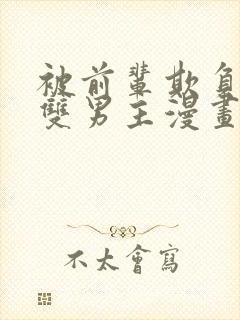 被前輩欺負
雙男主漫畫
不太會寫